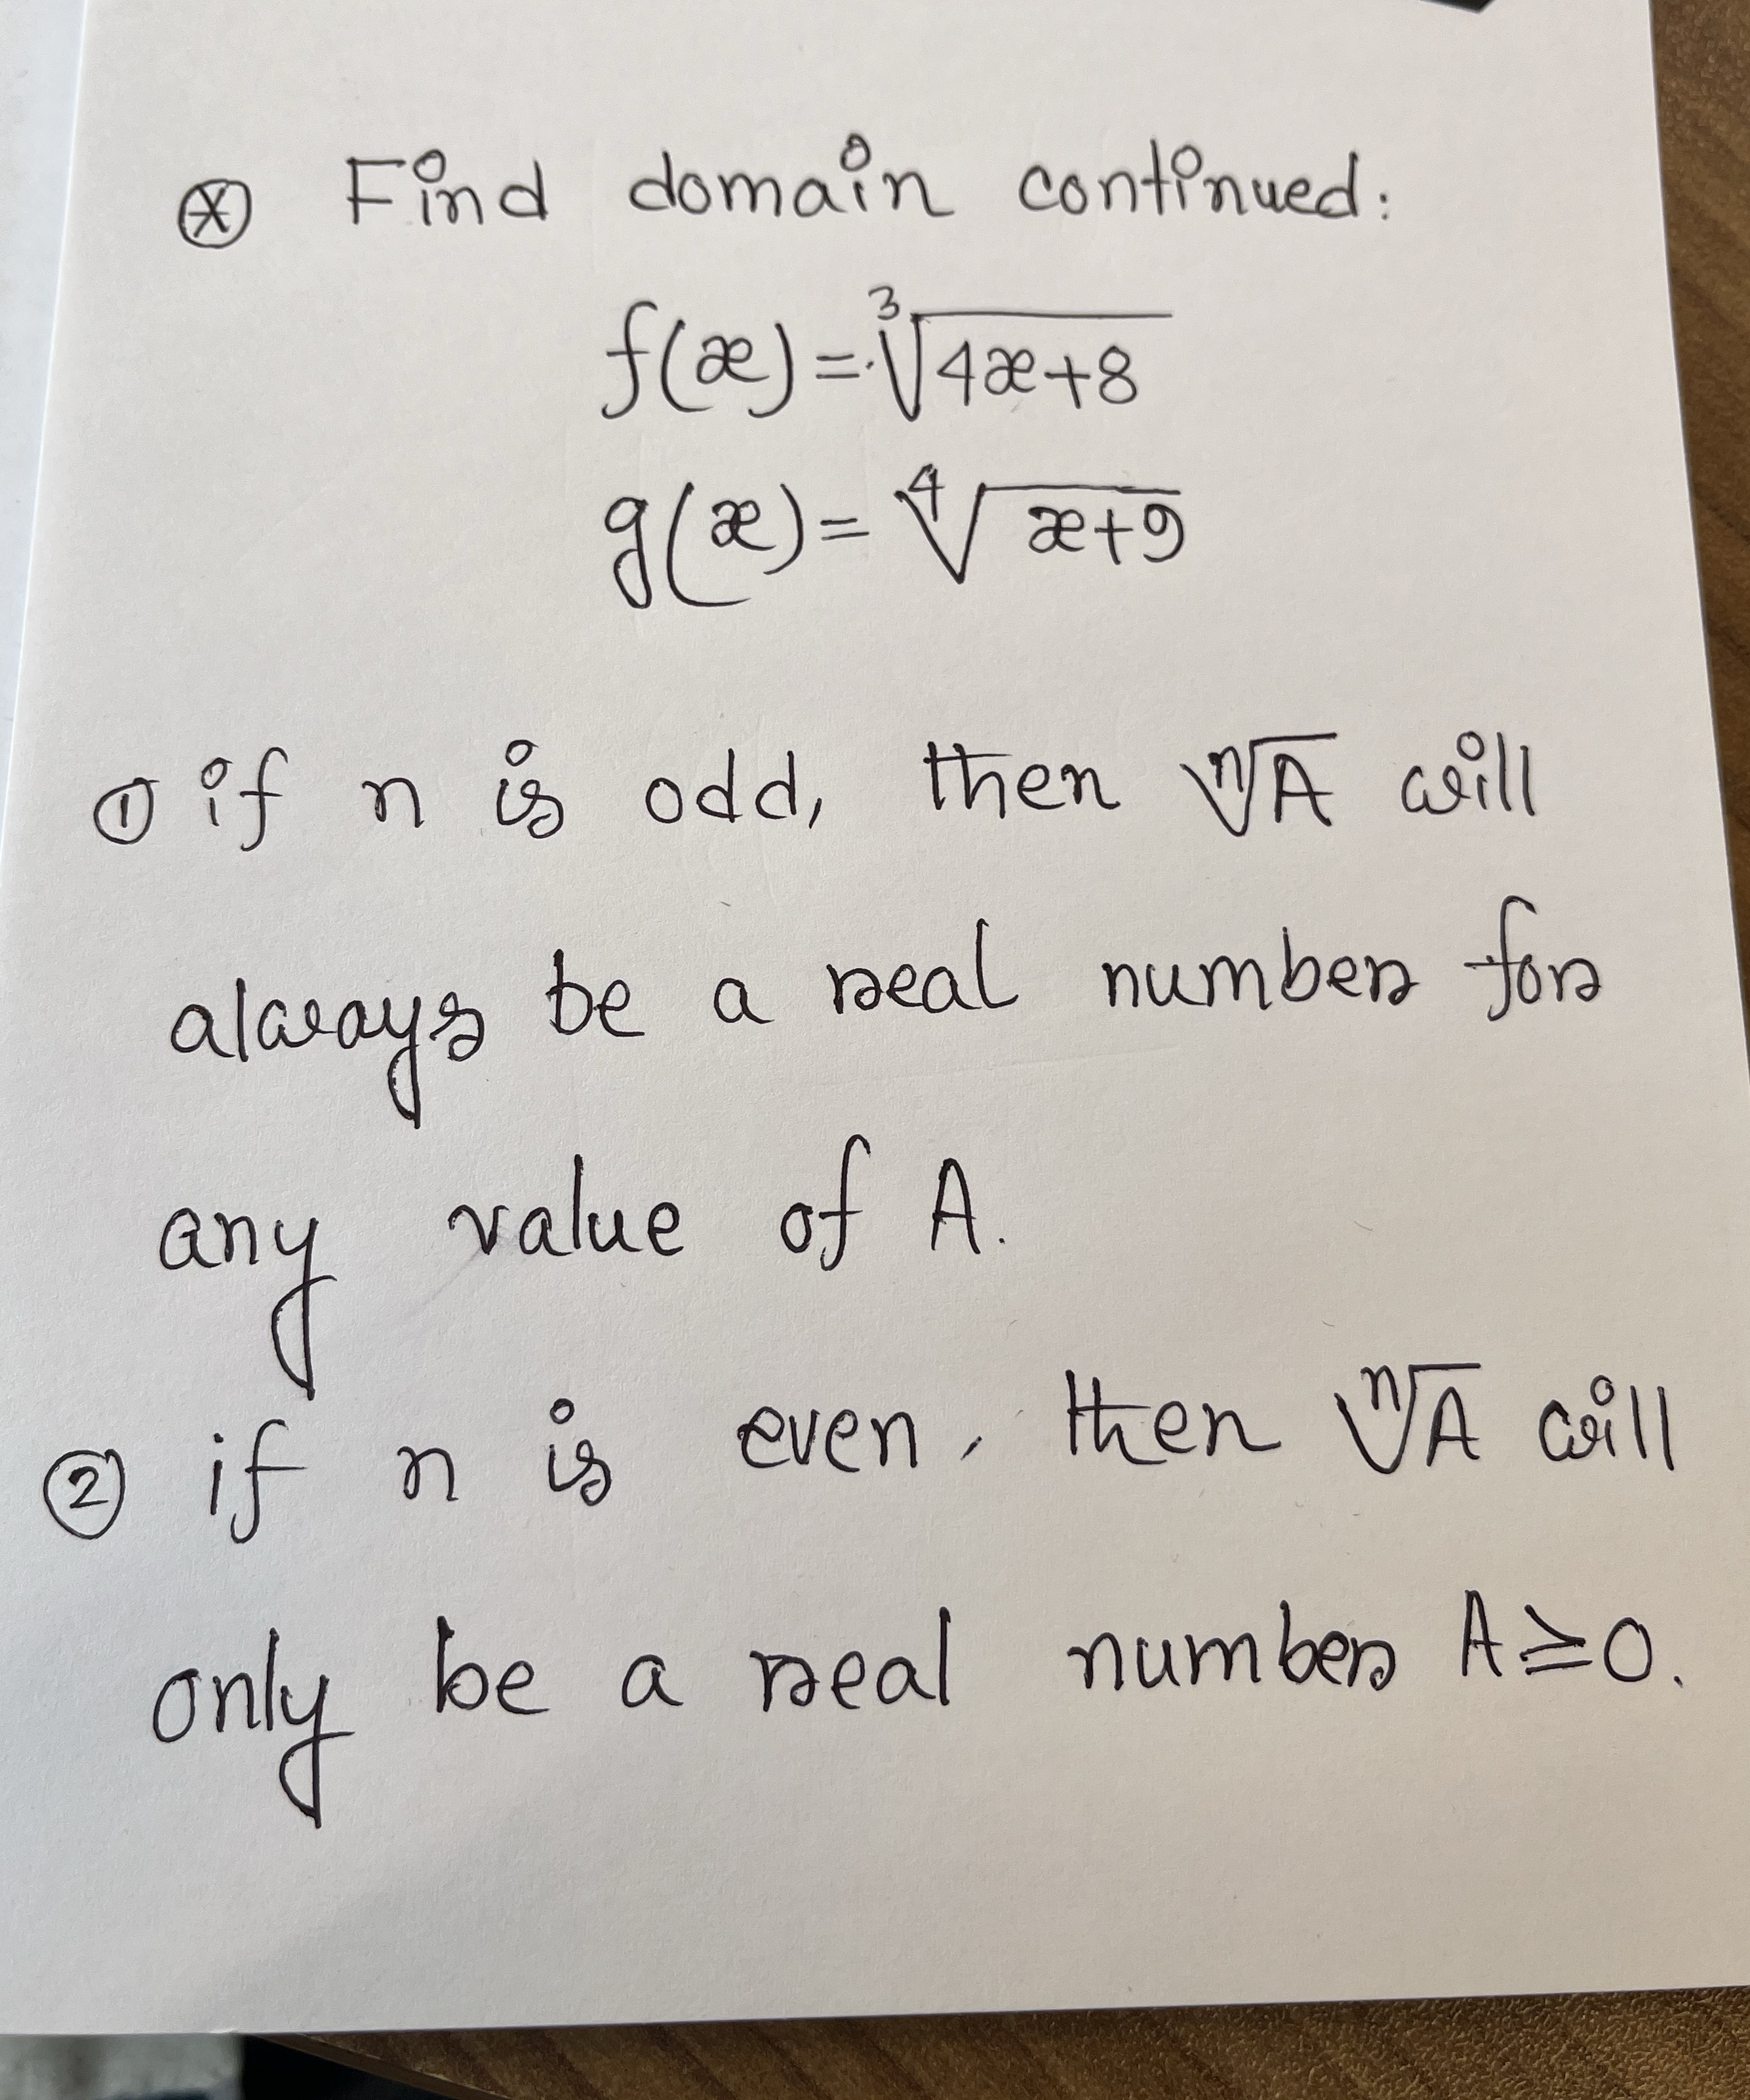 ⊛ Find domain continued:
f(x) = ∛(4x+8)
g(x) = ∜(x+9)
① if n is odd, then ⁿ√A will
always be a real number for
any value of A.
② if n is even, then ⁿ√A will
only be a real number A≥0.